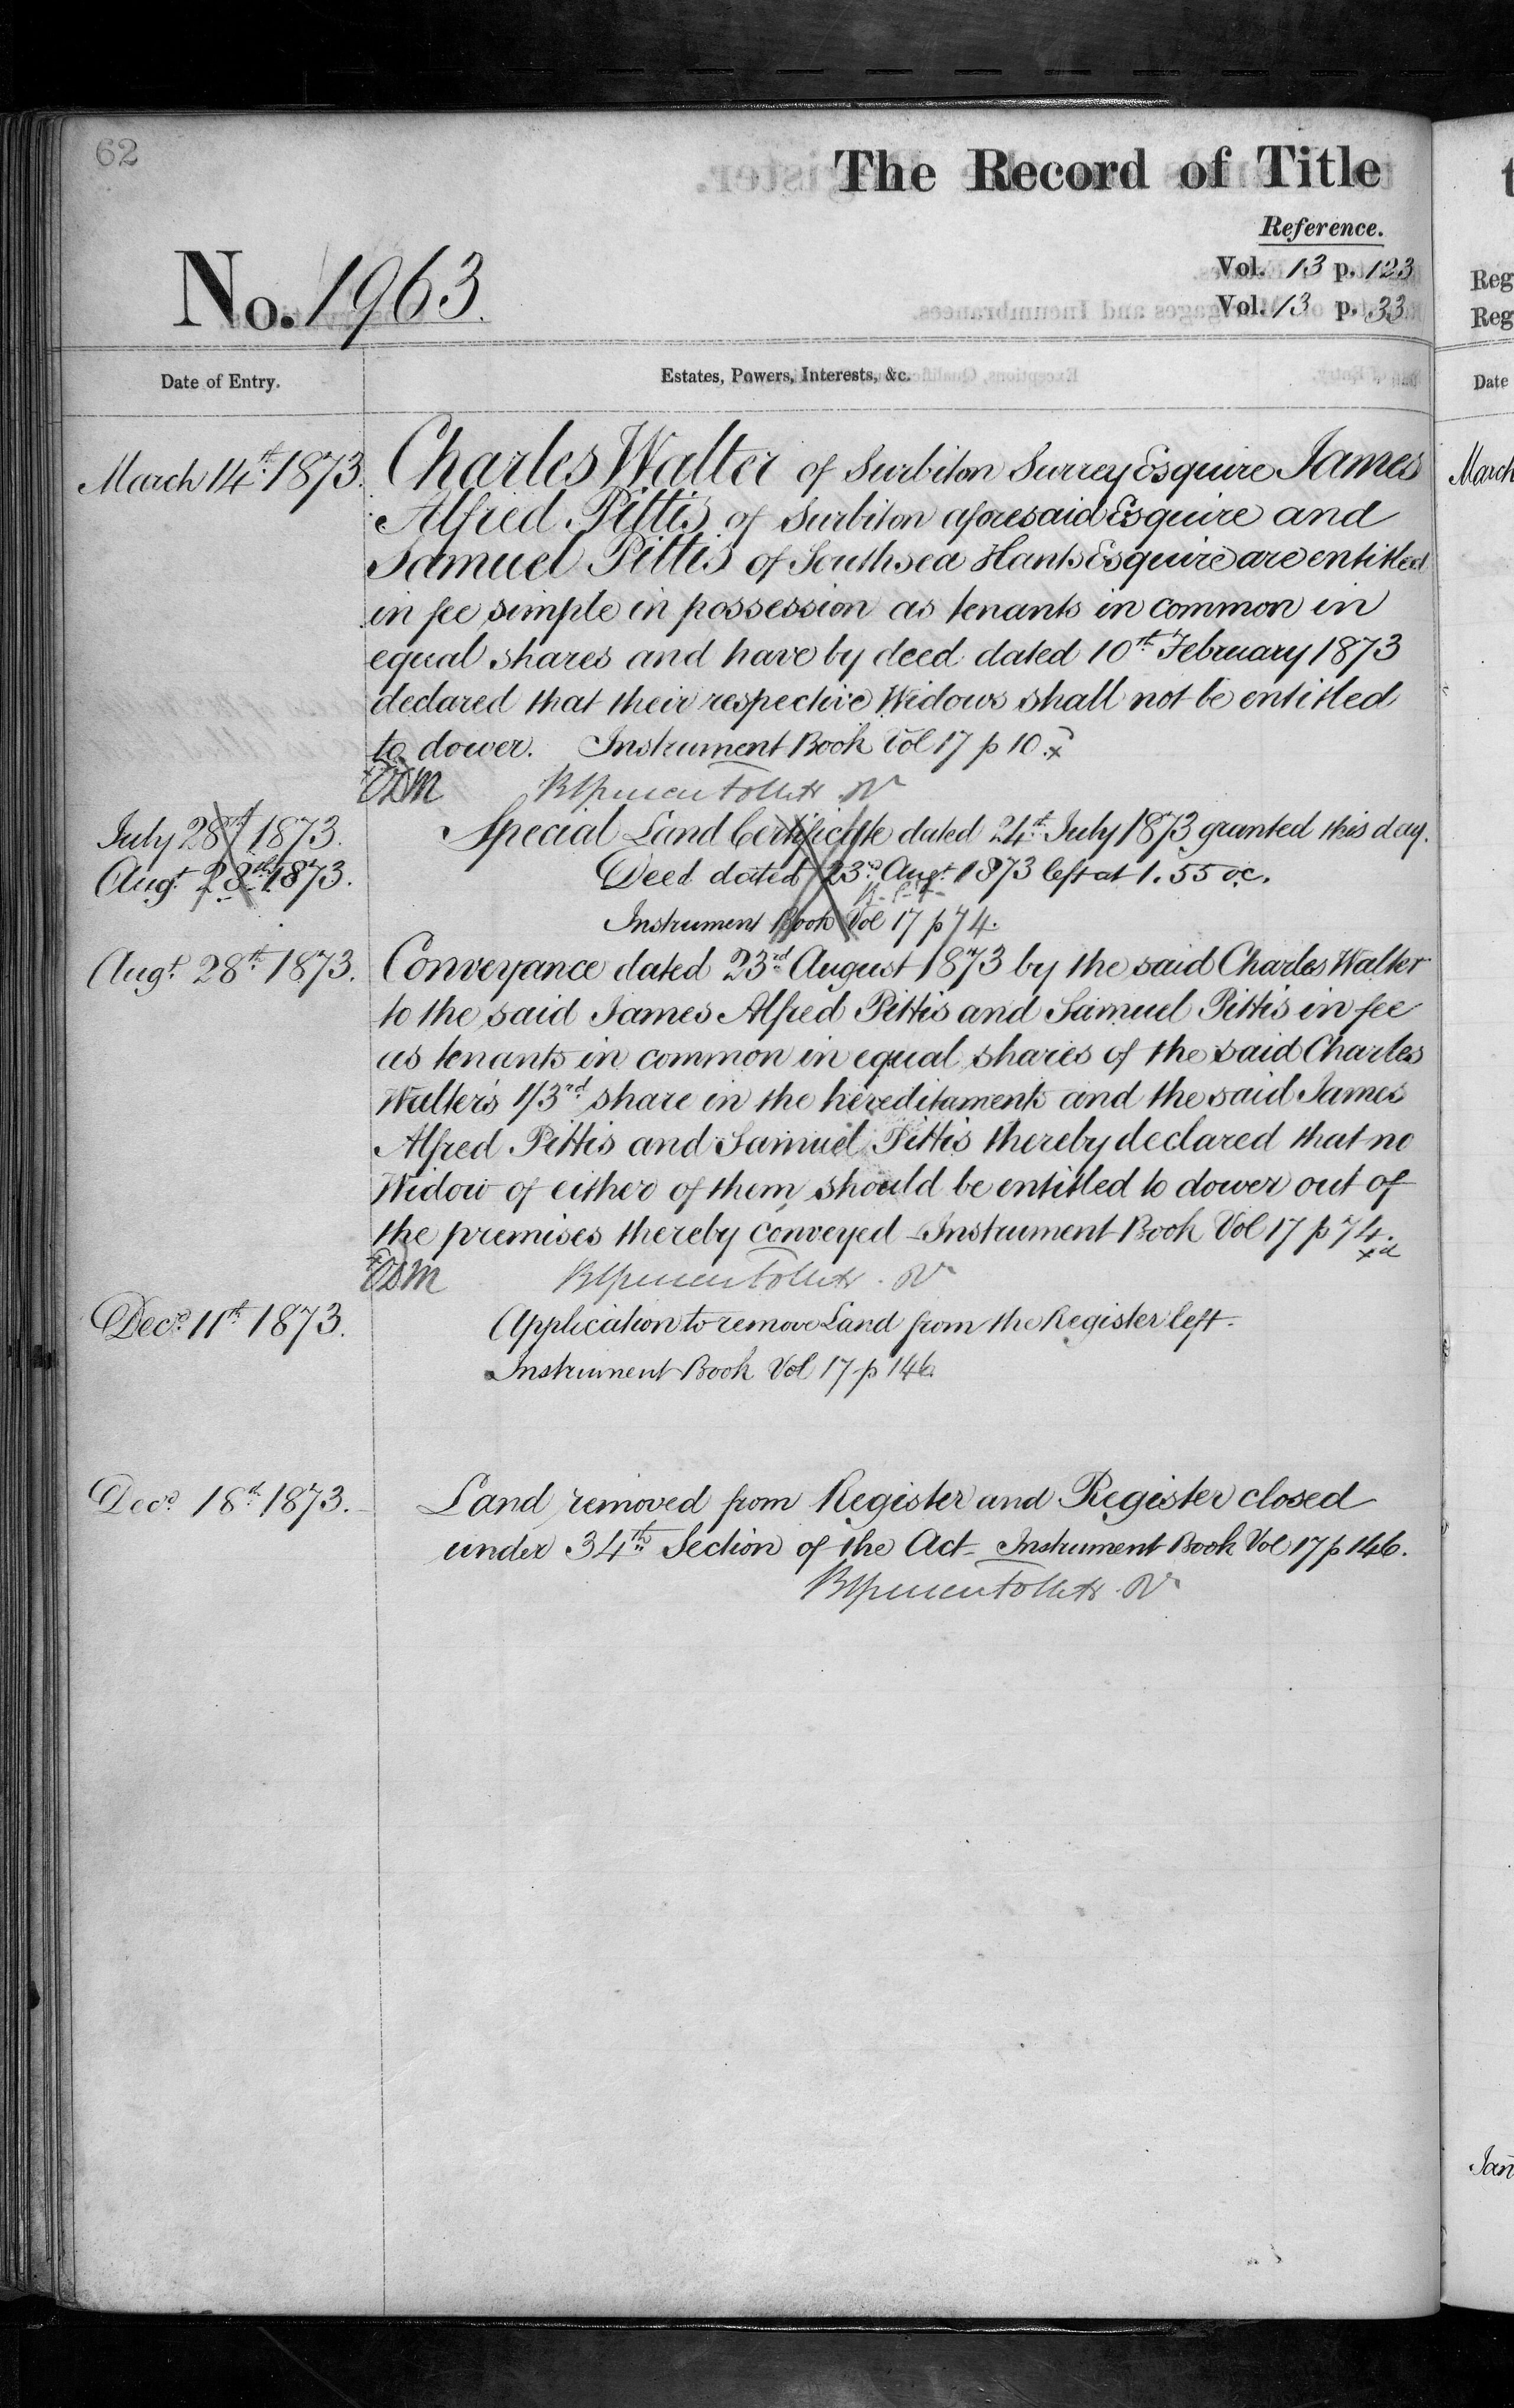 62
The Record of Title
Reference.
Vol. 13 p. 123
Vol. 13 p. 33
No. 1963.
Date of Entry.
Estates, Powers, Interests, &c.
March 14th 1873.
Charles Walter of Surbiton Surrey Esquire James
Alfred Pittis of Surbiton aforesaid Esquire and
Samuel Pittis of Southsea Hants Esquire are entitled
in fee simple in possession as tenants in common in
equal shares and have by deed dated 10th February 1873
declared that their respective Widows shall not be entitled
to dower. Instrument Book Vol 17 p 10.
July 28th 1873.
Special Land Certificate dated 24th July 1873 granted this day.
Augt 28th 1873.
Deed dated 23rd Augt 1873 left at 1.55 oc.
Instrument Book Vol 17 p 74.
Augt 28th 1873.
Conveyance dated 23rd August 1873 by the said Charles Walter
to the said James Alfred Pittis and Samuel Pittis in fee
as tenants in common in equal shares of the said Charles
Walter's 1/3rd share in the hereditaments and the said James
Alfred Pittis and Samuel Pittis thereby declared that no
Widow of either of them should be entitled to dower out of
the premises thereby conveyed - Instrument Book Vol 17 p 74.
Decr 11th 1873.
Application to remove Land from the Register left.
Instrument Book Vol 17 p 146.
Decr 18th 1873.
Land removed from Register and Register closed
under 34th Section of the Act - Instrument Book Vol 17 p 146.
Reg
Reg
Date
March
Jan